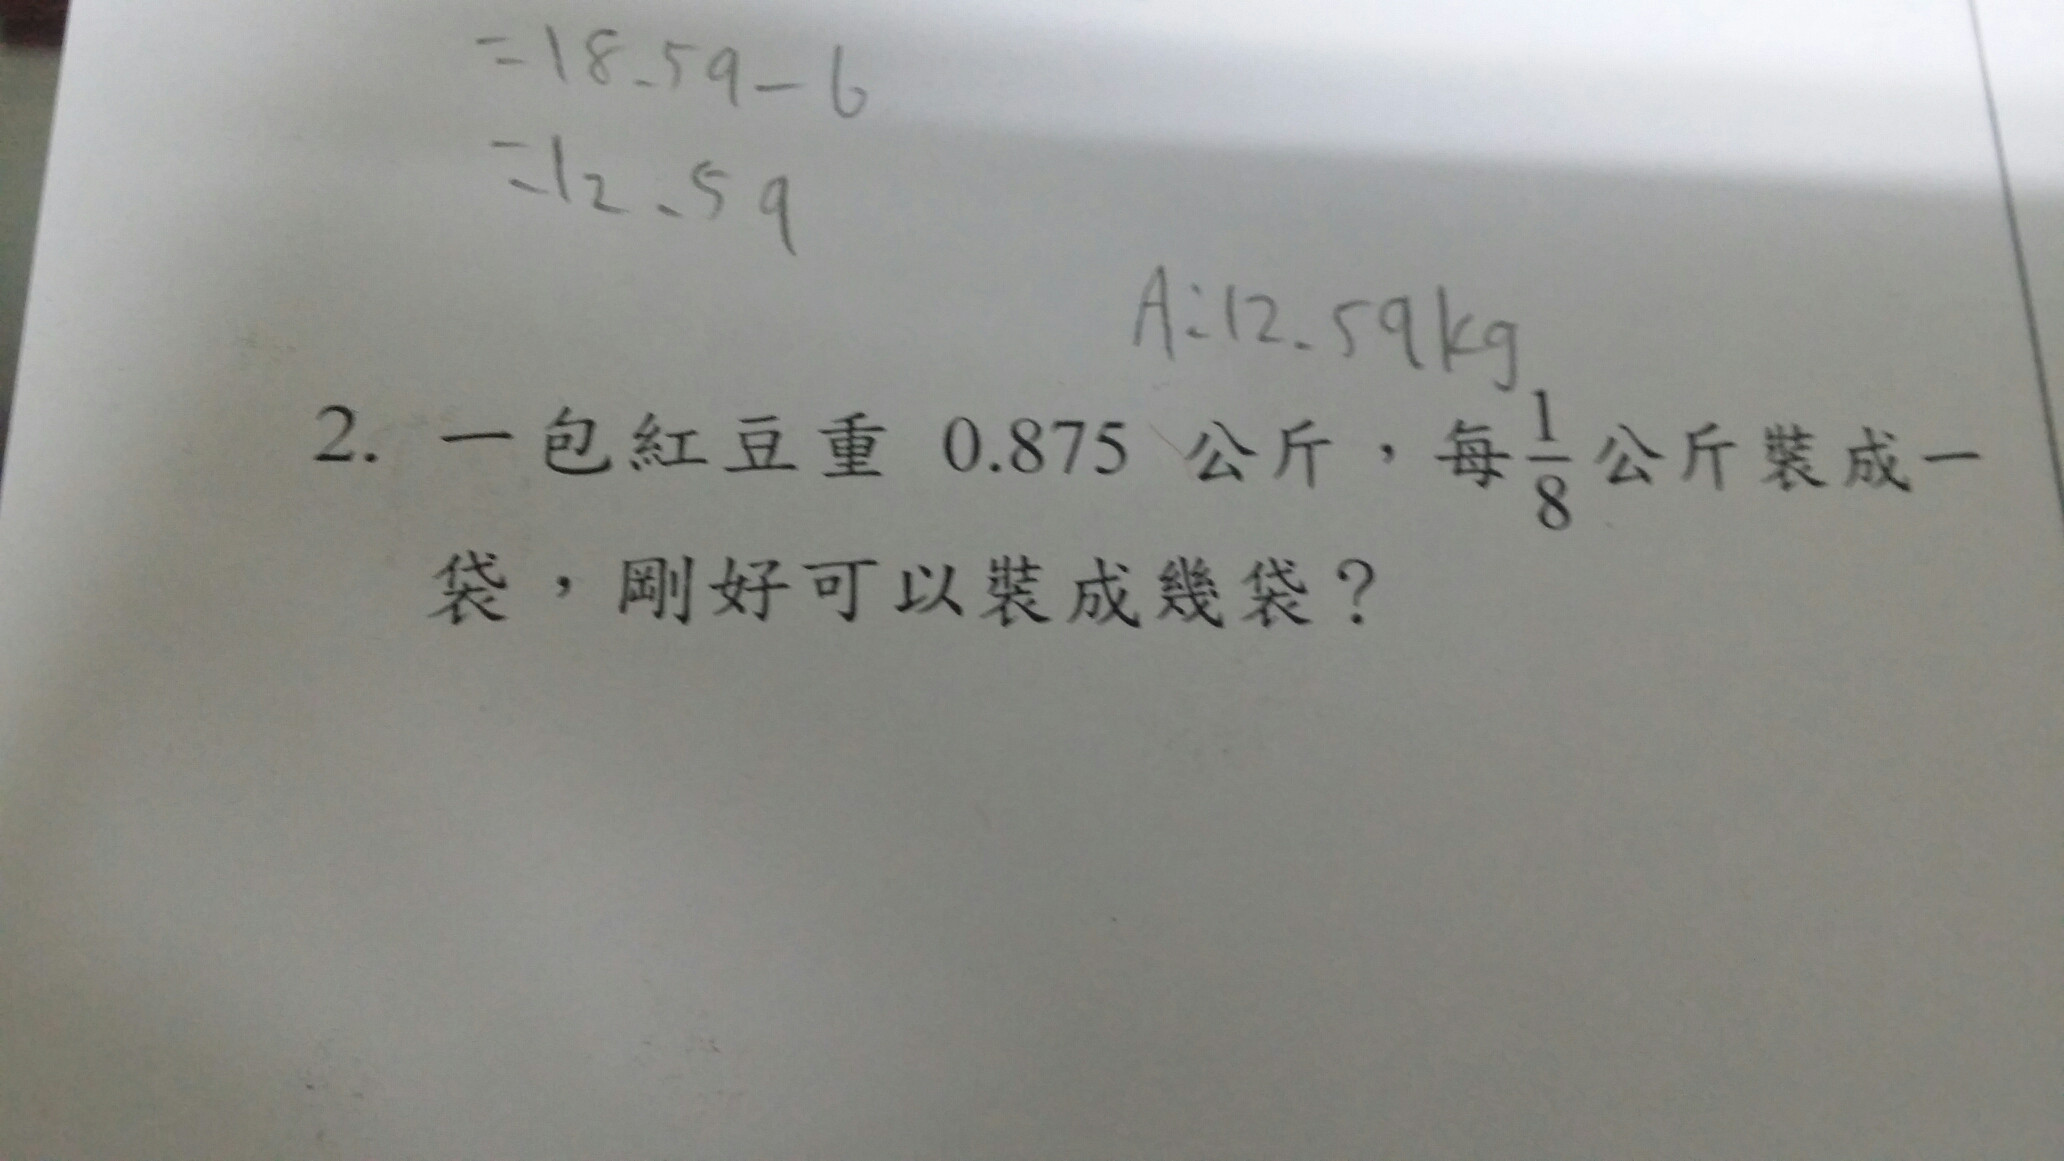 =18.59-6
=12.59
A:12.59kg
2. 一包紅豆重 0.875 公斤，每1/8公斤裝成一
袋，剛好可以裝成幾袋？